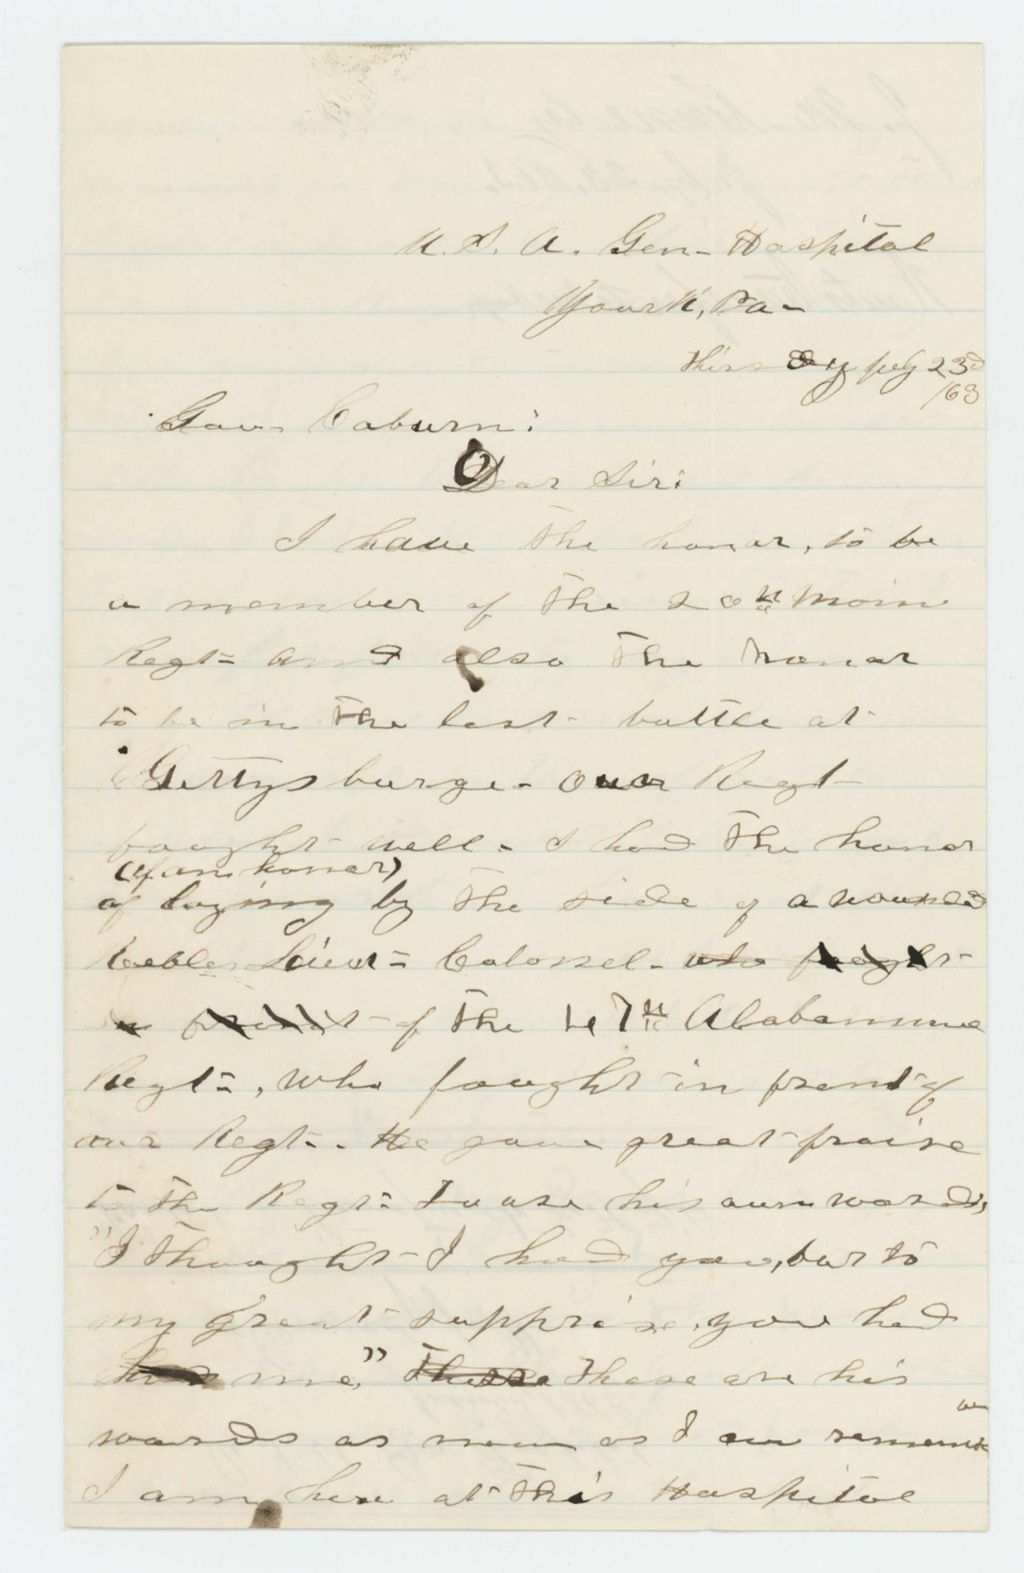 U. S. A. Gen- Hospital
Yourk, Pa-
This day July 23d
/63
Gov. Coburn:
Dear Sir:
I have the honor, to be
a member of the 20th Main
Regt- and also the honor
to be in the last battle at
Gettysburge- Our Regt
fought well- I had the honor
(if an honor)
of laying by the side of a wounded
Rebble Lieut- Colonel- who fought
in front of the 47th Alabamma
Regt-, who fought in front of
our Regt-. He gave great praise
to the Regt- To use his own words,
"I thought I had you, but to
my great supprise, you had
had me," These These are his
words as near as I can remember
I am here at this Hospital